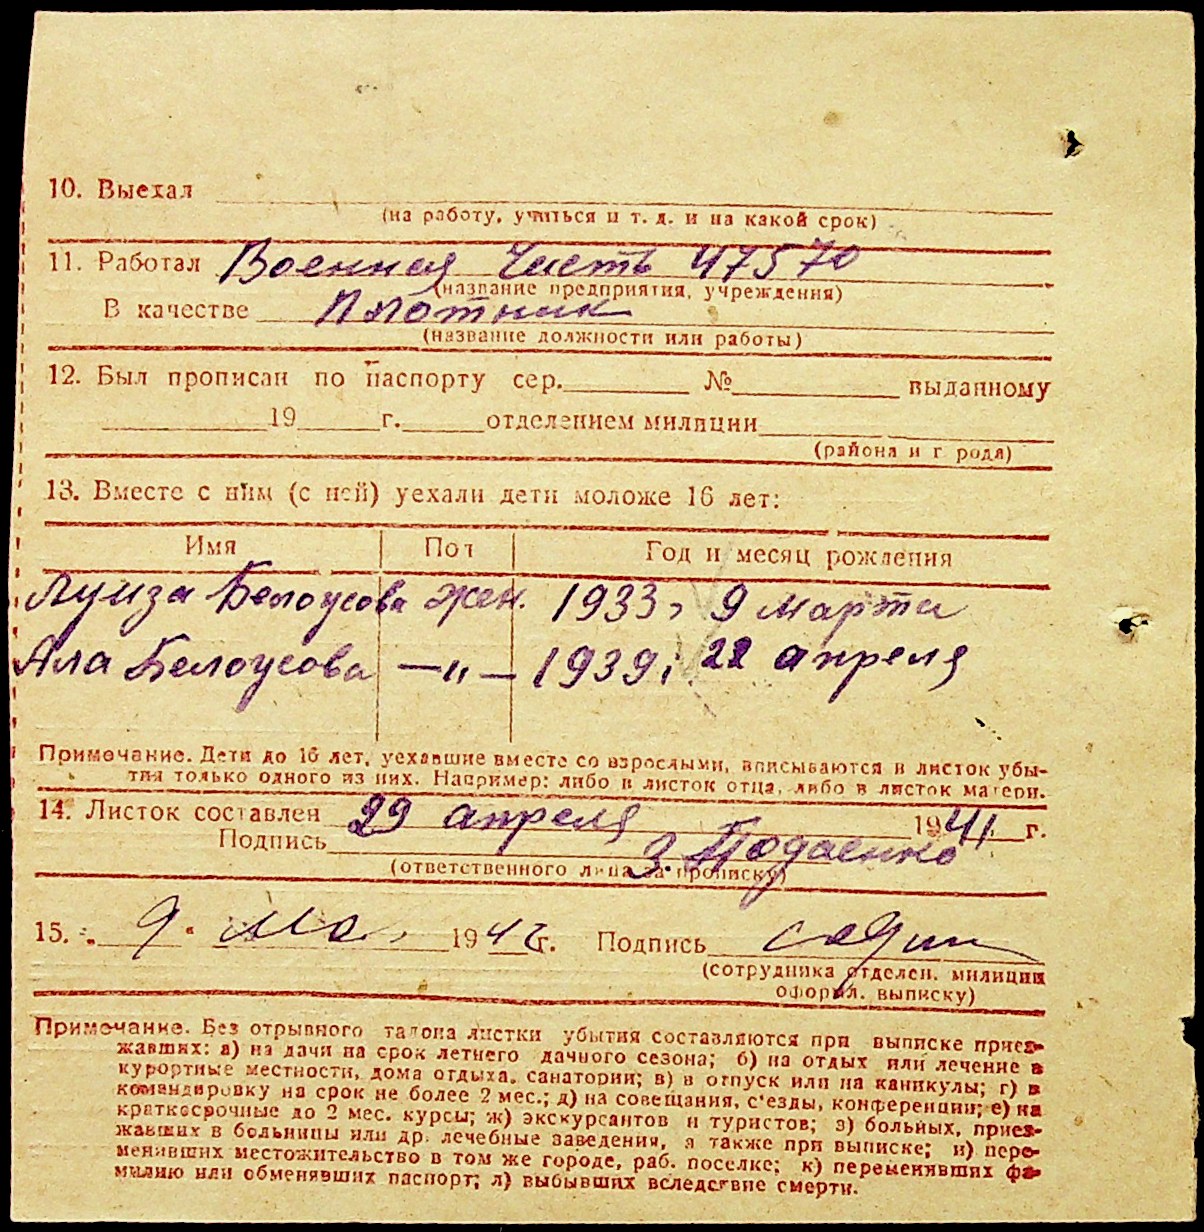 10. Выехал
(на работу, учиться и т. д. и на какой срок)
11. Работал Военная Часть 47570
(название предприятия, учреждения)
В качестве Плотник
(название должности или работы)
12. Был прописан по паспорту сер. № выданному
19 г. отделением милиции
(района и г рода)
13. Вместе с ним (с ней) уехали дети моложе 16 лет:
Имя Пол Год и месяц рождения
Луиза Белоусова жен. 1933, 9 марта
Ала Белоусова —"— 1939, 22 апреля
Примечание. Дети до 16 лет, уехавшие вместе со взрослыми, вписываются в листок убы-
тия только одного из них. Например: либо в листок отца, либо в листок матери.
14. Листок составлен 29 апреля 1941 г.
Подпись З.
(ответственного лица за прописку)
15. „ 9 " Мая 194 г. Подпись
(сотрудника отделен. милиции
оформл. выписку)
Примечание. Без отрывного талона листки убытия составляются при выписке приез-
жавших: а) на дачи на срок летнего дачного сезона; б) на отдых или лечение в
курортные местности, дома отдыха, санатории; в) в отпуск или на каникулы; г) в
командировку на срок не более 2 мес.; д) на совещания, с'езды, конференции; е) на
краткосрочные до 2 мес. курсы; ж) экскурсантов и туристов; з) больных, приез-
жавших в больницы или др. лечебные заведения, а также при выписке; и) пере-
менивших местожительство в том же городе, раб. поселке; к) переменявших фа-
милию или обменявших паспорт; л) выбывших вследствие смерти.